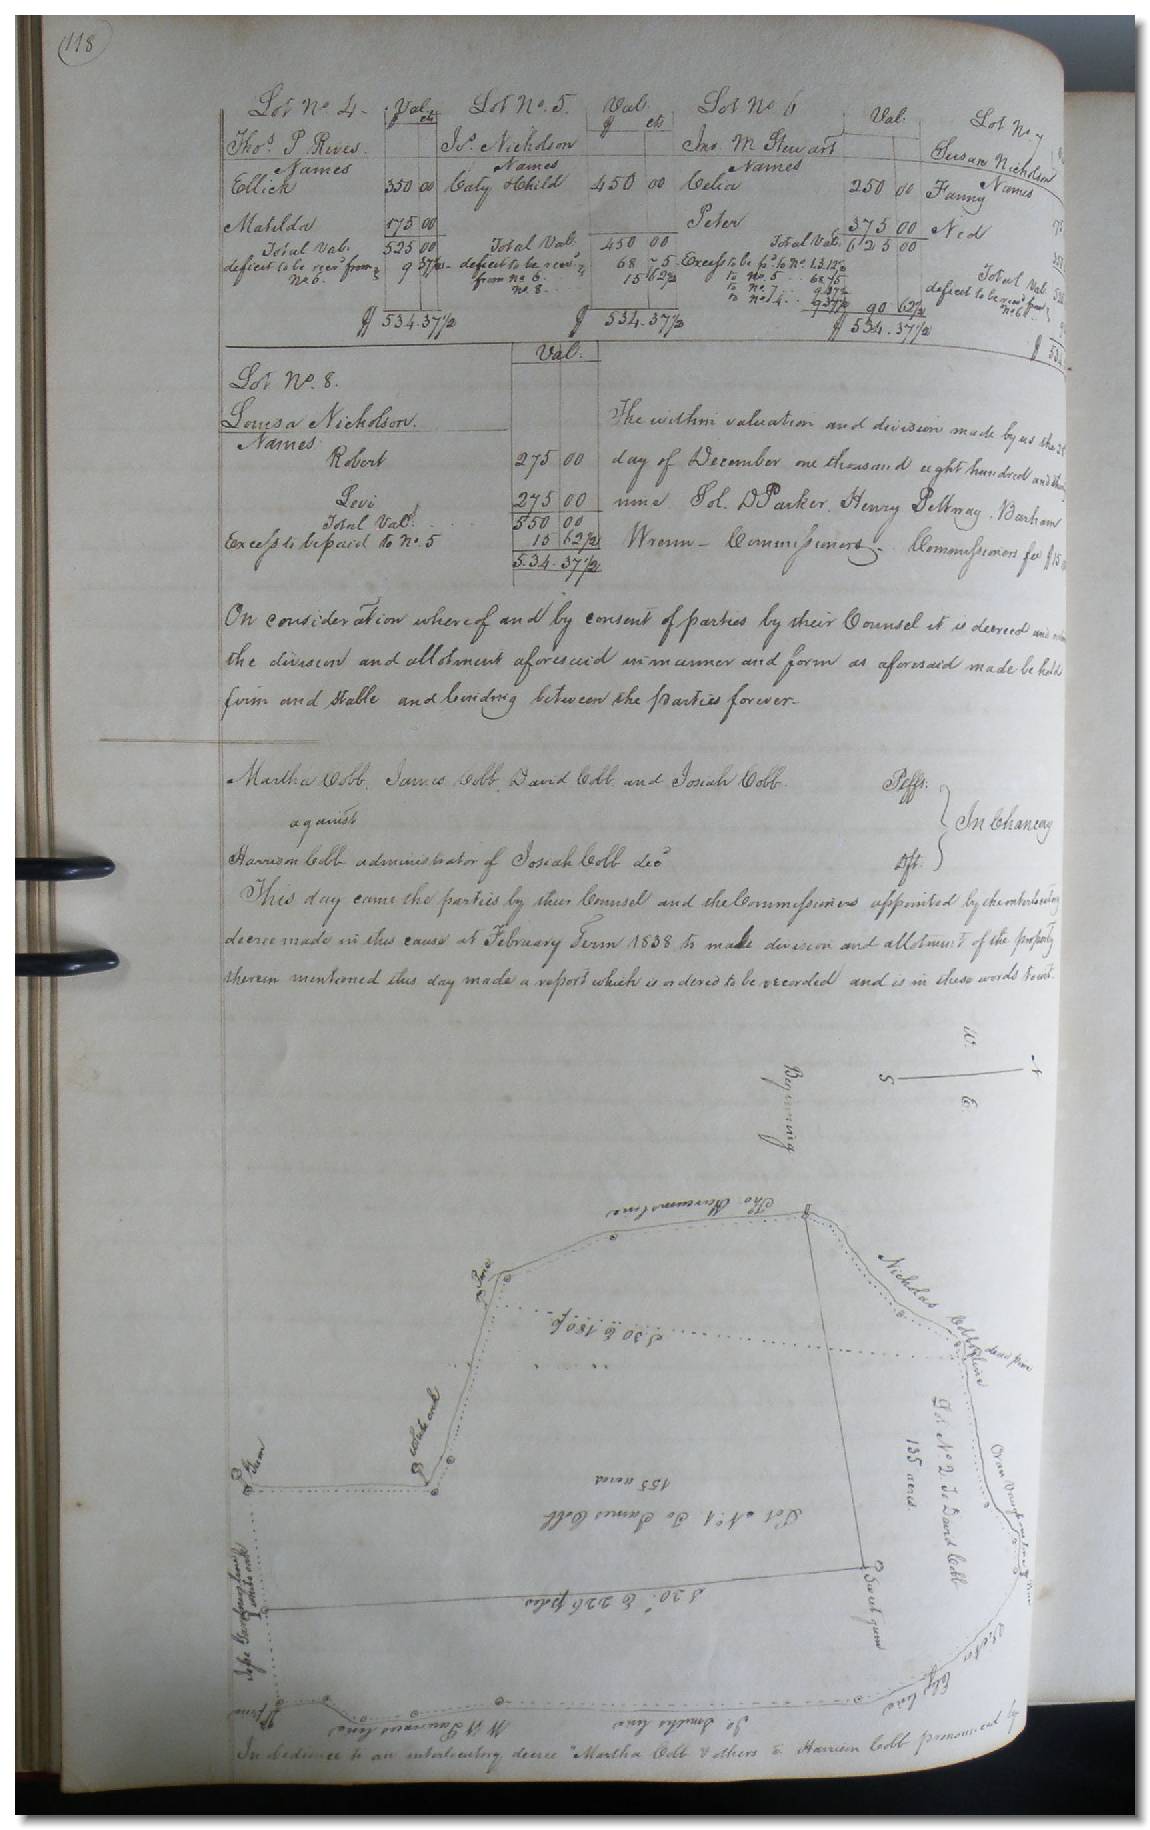 118
Lot No. 4 - Val. Lot No. 5. Val. Lot No 6 Val. Lot No 7
$ cts $ cts
Thos. P. Reives. Js. Nicholson Jno. M Stewart Susan Nicholson
Names Names Names Names
Ellick 350 00 Caty & Child 450 00 Celia 250 00 Fanny
Matilda 175 00 Peter 375 00 Ned
Total Val. 525 00 Total Val. 450 00 Total Val. 625 00 Total Val.
deficit to be recd. from No 6. 9 37½ deficit to be recd. from No 6. 68 75 Excess to be pd. to No. 1.3.12½ deficit to be recd. from No 6
No. 8. 15 62½ to No. 5 68.75
to No. 7 9.37½
to No. 4 9.37½ 90 62½
$ 534.37½ $ 534.37½ $ 534.37½ $ 534
Val.
Lot No. 8.
Louisa Nicholson.
Names
Robert 275 00
Levi 275 00
Total Val. 550 00
Excess to be paid to No. 5 15 62½
534.37½
The within valuation and division made by us the
day of December one thousand eight hundred and
nine Sol. D Parker, Henry Pettway, Barham
Wrenn - Commissioners - Commissioners fee $15
On consideration whereof and by consent of parties by their Counsel it is decreed and
the division and allotment aforesaid in manner and form as aforesaid made be held
firm and stable and binding between the parties forever -
Martha Cobb, James Cobb, David Cobb and Josiah Cobb Plffs.
against In Chancery
Harrison Cobb administrator of Josiah Cobb decd. Dft.
This day came the parties by their Counsel and the Commissioners appointed by the interlocutory
decree made in this cause at February Term 1838 to make division and allotment of the property
therein mentioned this day made a report which is ordered to be recorded and is in these words towit.
W.
N
S
E.
Beginning
Tho. line
Pine
Nicholas Cobbs line
dead pine
S 30 E 180 p
White oak
Gum
Lot No 2. To David Cobb
135 acres.
155 acres
Lot No 1. To James Cobb
S 20° E 226 poles
Sweet gum
white oak
Pine
line
Js. Smiths line
line
In obedience to an interlocutory decree "Martha Cobb & others vs. Harrison Cobb pronounced by